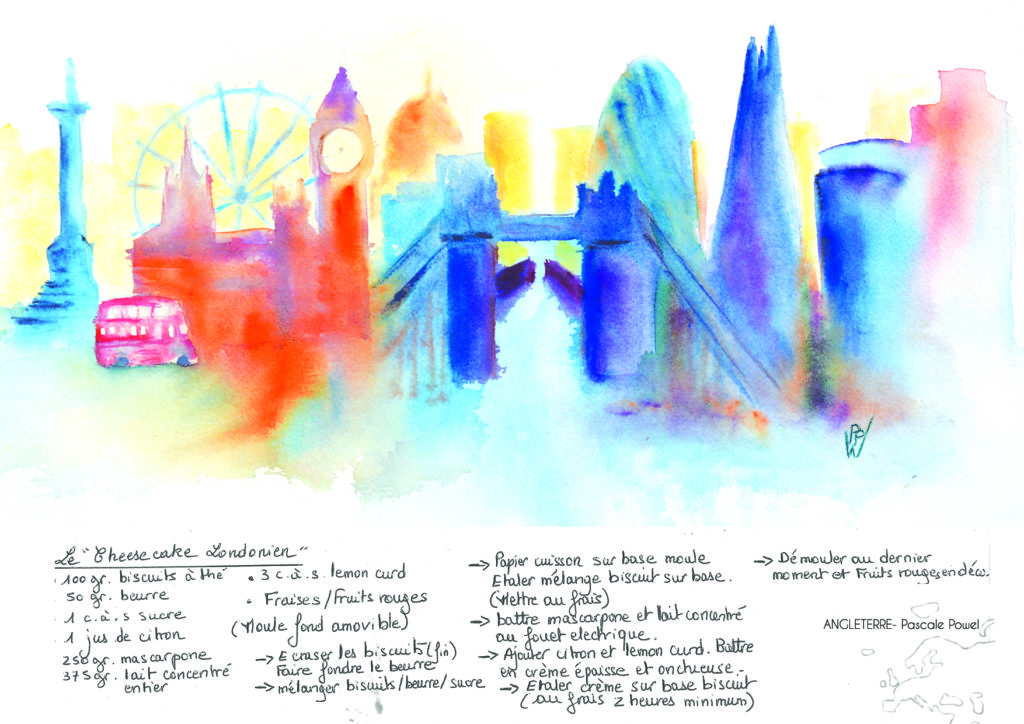 Le "Cheesecake Londonien"
. 100 gr. biscuits à thé
. 50 gr. beurre
. 1 c.à.s sucre
. 1 jus de citron
. 250 gr. mascarpone
. 375 gr. lait concentré
entier
• 3 c.à.s. lemon curd
• Fraises/Fruits rouges
(Moule fond amovible)
→ Ecraser les biscuits (fin)
Faire fondre le beurre
→ mélanger biscuits/beurre/sucre
→ Papier cuisson sur base moule
Etaler mélange biscuit sur base.
(Mettre au frais)
→ battre mascarpone et lait concentré
au fouet electrique.
→ Ajouter citron et lemon curd. Battre
en crème épaisse et onctueuse.
→ Etaler crème sur base biscuit
(au frais 2 heures minimum)
→ Démouler au dernier
moment et Fruits rouges, en déco.
ANGLETERRE- Pascale Powel